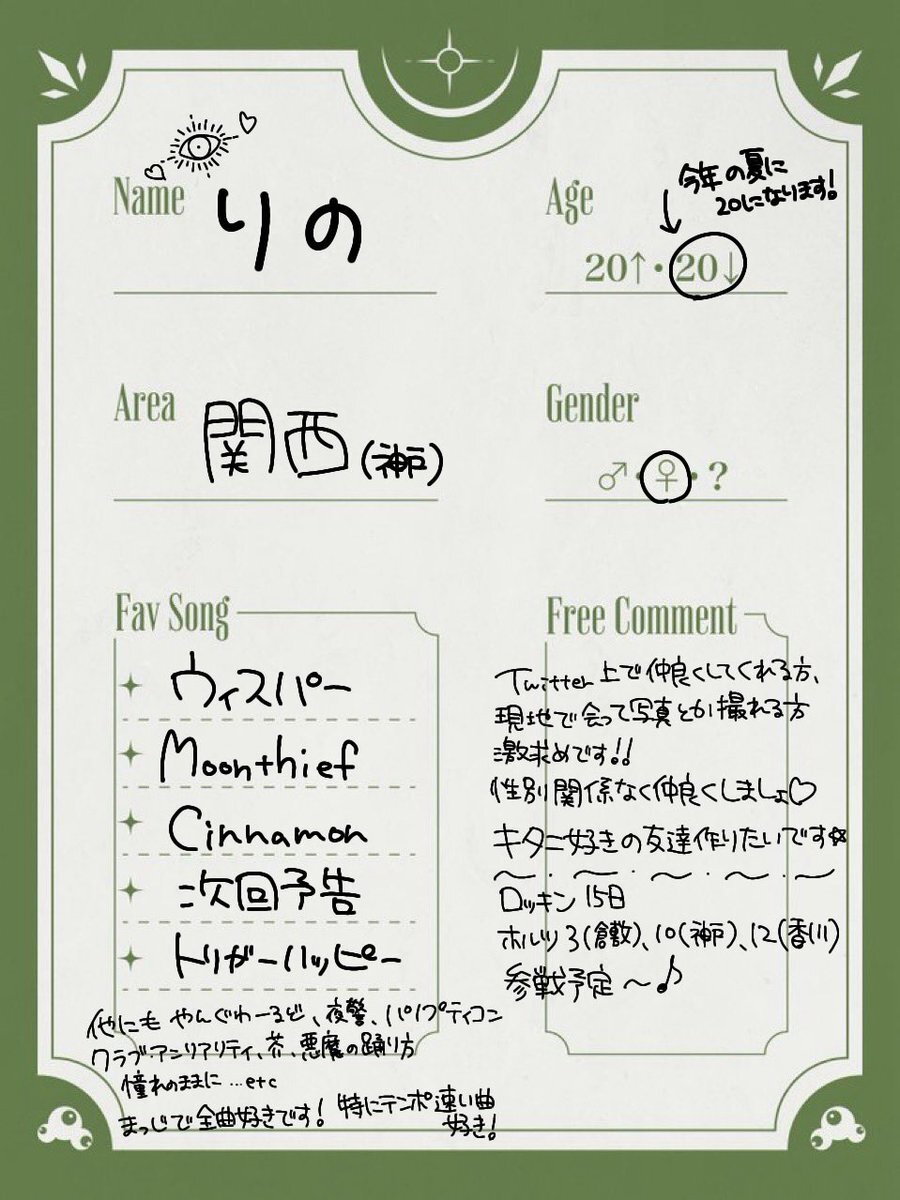 Name
りの
Age
今年の夏に
20になります!
20↑・20↓
Area
関西(神戸)
Gender
♂・♀・?
Fav Song
ウィスパー
Moonthief
Cinnamon
次回予告
トリガーハッピー
他にも やんぐわーるど、夜警、パノプティコン
クラブ・アンリアリティ、芥、悪魔の踊り方
憧れのままに …etc
まっじで全曲好きです! 特にテンポ速い曲
好き!
Free Comment
Twitter上で仲良くしてくれる方、
現地で会って写真とか撮れる方
激求めです!!
性別関係なく仲良くしましょ♡
キタニ好きの友達作りたいです☆
〜・〜・〜・〜・〜
ロッキン 15日
ホルツ 3(倉敷)、10(神戸)、12(香川)
参戦予定 〜♪